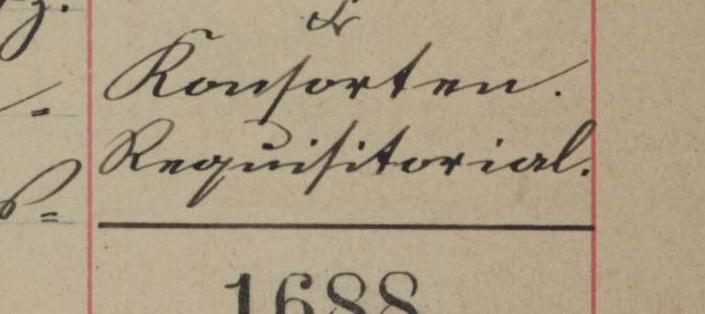 &
Konsorten.
Requisitorial.
1688